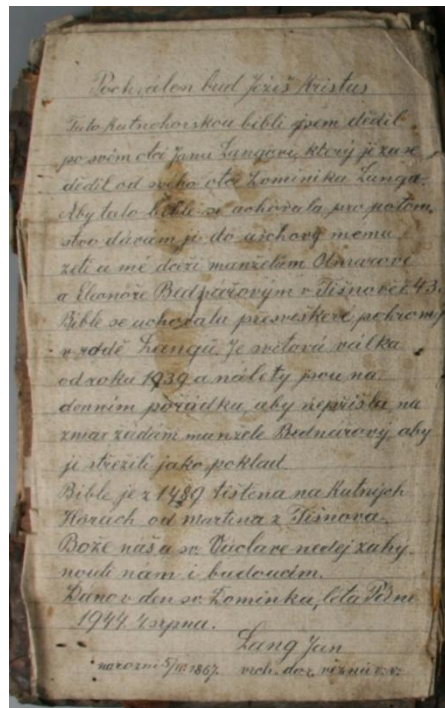 Pochválen buď Ježíš Kristus
Tuto kutnohorskou bibli jsem dědil
po svém otci Janu Langovi, který ji zase
dědil od svého otce Dominika Langa.
Aby tato bible se uchovala pro potom
stvo dávám ji do úschovy mému
zeti a mé dceři manželům Otmarovi
a Eleonoře Bednářovým v Tišnově č. 43.
Bible se uchovala přes veškeré pohromy
v rodě Langů. Je světová válka
od roku 1939 a nálety jsou na
denním pořádku, aby nepřišla na
zmar žádám manžele Bednářovy aby
ji střežili jako poklad.
Bible je z 1489 tištěna na Kutných
Horách od Martina z Tišnova.
Bože náš a sv. Václave nedej zahy
nouti nám i budoucím.
Dáno v den sv. Dominka, léta Páně
1944 4 srpna.
Lang Jan
narozen 5/II. 1867. vrch. doz. věznů v. v.